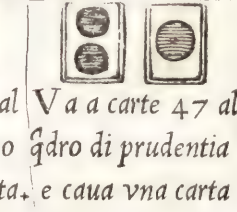 al Va a carte 47 al
o q̃dro di prudentia
ta. e caua vna carta